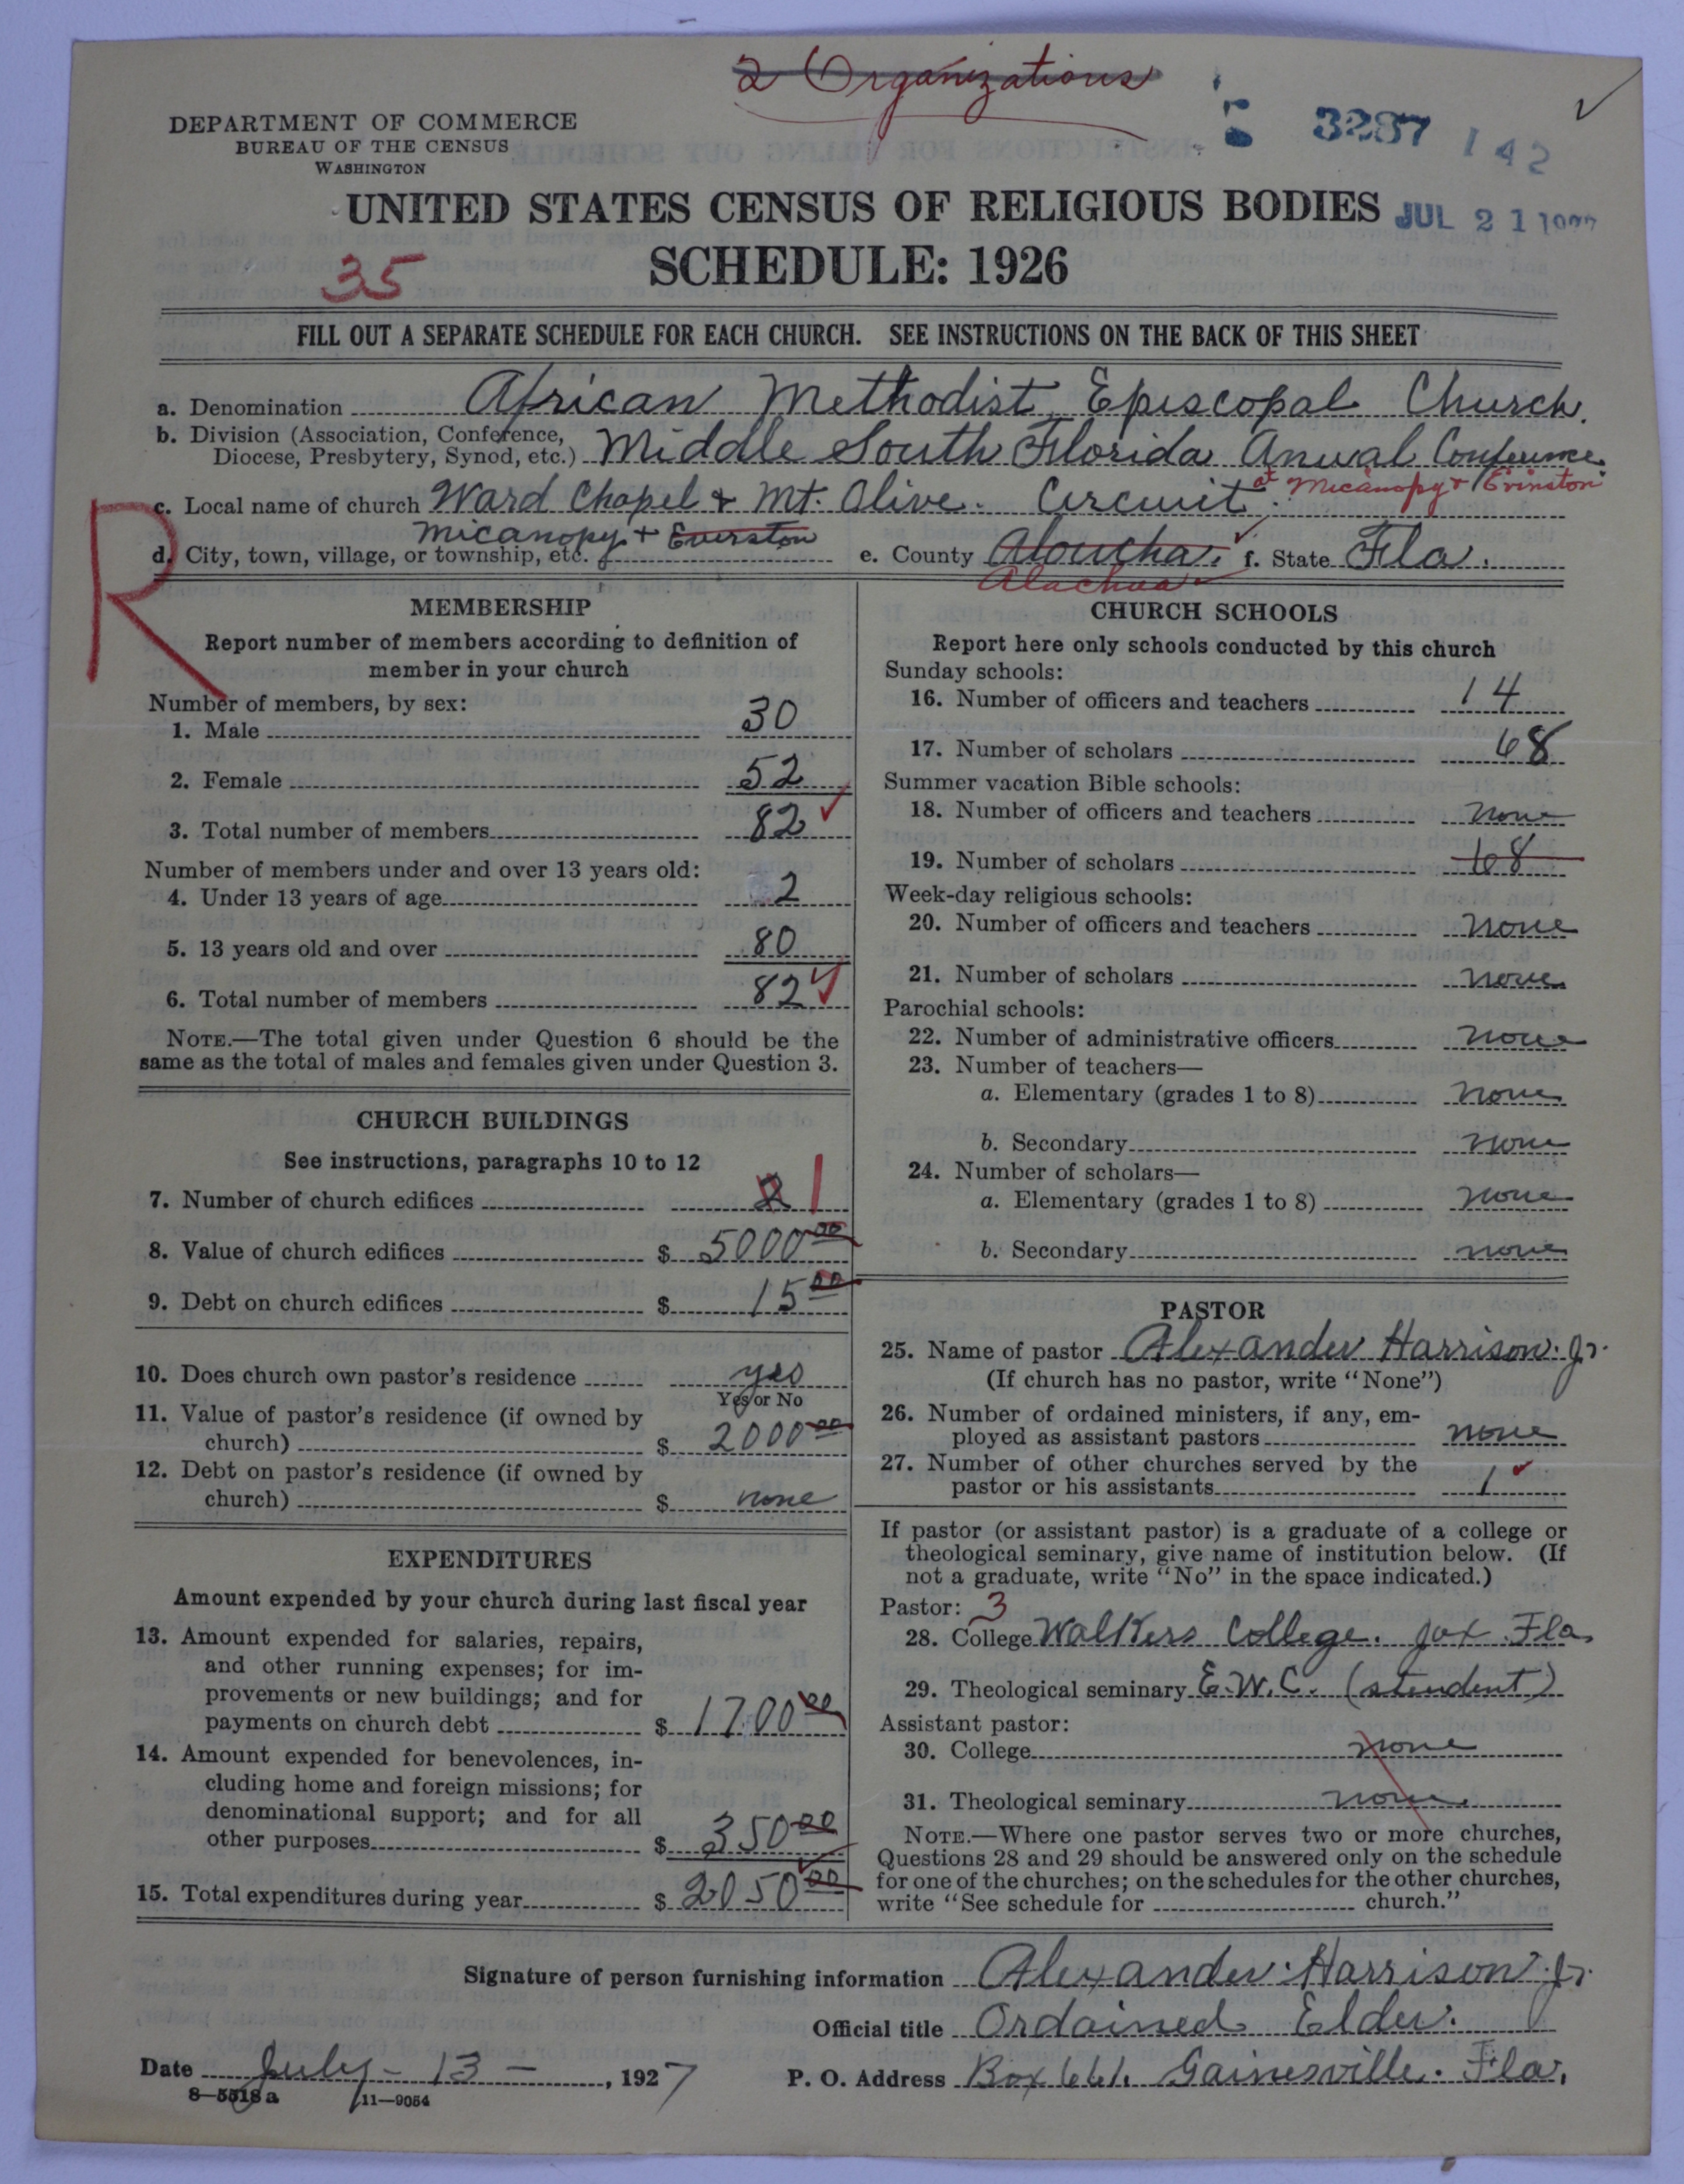 2 Organizations
DEPARTMENT OF COMMERCE
BUREAU OF THE CENSUS
WASHINGTON
3287 142
UNITED STATES CENSUS OF RELIGIOUS BODIES
JUL 21
SCHEDULE: 1926
35
FILL OUT A SEPARATE SCHEDULE FOR EACH CHURCH. SEE INSTRUCTIONS ON THE BACK OF THIS SHEET
a. Denomination African Methodist Episcopal Church.
b. Division (Association, Conference, Diocese, Presbytery, Synod, etc.) Middle South Florida Anual Conference.
at Micanopy & Evinston
c. Local name of church Ward Chapel & Mt. Olive. Circuit.
R
d. City, town, village, or township, etc. Micanopy & Everston e. County Aloucha. f. State Fla.
Alachua
MEMBERSHIP
Report number of members according to definition of
member in your church
Number of members, by sex:
1. Male 30
2. Female 52
3. Total number of members 82
Number of members under and over 13 years old:
4. Under 13 years of age 2
5. 13 years old and over 80
6. Total number of members 82
NOTE.—The total given under Question 6 should be the
same as the total of males and females given under Question 3.
CHURCH BUILDINGS
See instructions, paragraphs 10 to 12
7. Number of church edifices 2 1
8. Value of church edifices $ 5000 00
9. Debt on church edifices $ 15 00
10. Does church own pastor's residence yes
Yes or No
11. Value of pastor's residence (if owned by
church) $ 2000 00
12. Debt on pastor's residence (if owned by
church) $ none
EXPENDITURES
Amount expended by your church during last fiscal year
13. Amount expended for salaries, repairs,
and other running expenses; for im-
provements or new buildings; and for
payments on church debt $ 1700 00
14. Amount expended for benevolences, in-
cluding home and foreign missions; for
denominational support; and for all
other purposes $ 350 00
15. Total expenditures during year $ 2050 00
CHURCH SCHOOLS
Report here only schools conducted by this church
Sunday schools:
16. Number of officers and teachers 14
17. Number of scholars 68
Summer vacation Bible schools:
18. Number of officers and teachers none
19. Number of scholars 68
Week-day religious schools:
20. Number of officers and teachers none
21. Number of scholars none
Parochial schools:
22. Number of administrative officers none
23. Number of teachers—
a. Elementary (grades 1 to 8) none
b. Secondary none
24. Number of scholars—
a. Elementary (grades 1 to 8) none
b. Secondary none
PASTOR
25. Name of pastor Alexander Harrison. Jr.
(If church has no pastor, write "None")
26. Number of ordained ministers, if any, em-
ployed as assistant pastors none
27. Number of other churches served by the
pastor or his assistants 1
If pastor (or assistant pastor) is a graduate of a college or
theological seminary, give name of institution below. (If
not a graduate, write "No" in the space indicated.)
Pastor: 3
28. College Walkers College. Jax. Fla.
29. Theological seminary E.W.C. (student)
Assistant pastor:
30. College none
31. Theological seminary none.
NOTE.—Where one pastor serves two or more churches,
Questions 28 and 29 should be answered only on the schedule
for one of the churches; on the schedules for the other churches,
write "See schedule for church."
Signature of person furnishing information Alexander Harrison. Jr.
Official title Ordained Elder.
Date July - 13 -, 1927 P. O. Address Box 661. Gainesville. Fla.
8—5518 a 11—9054